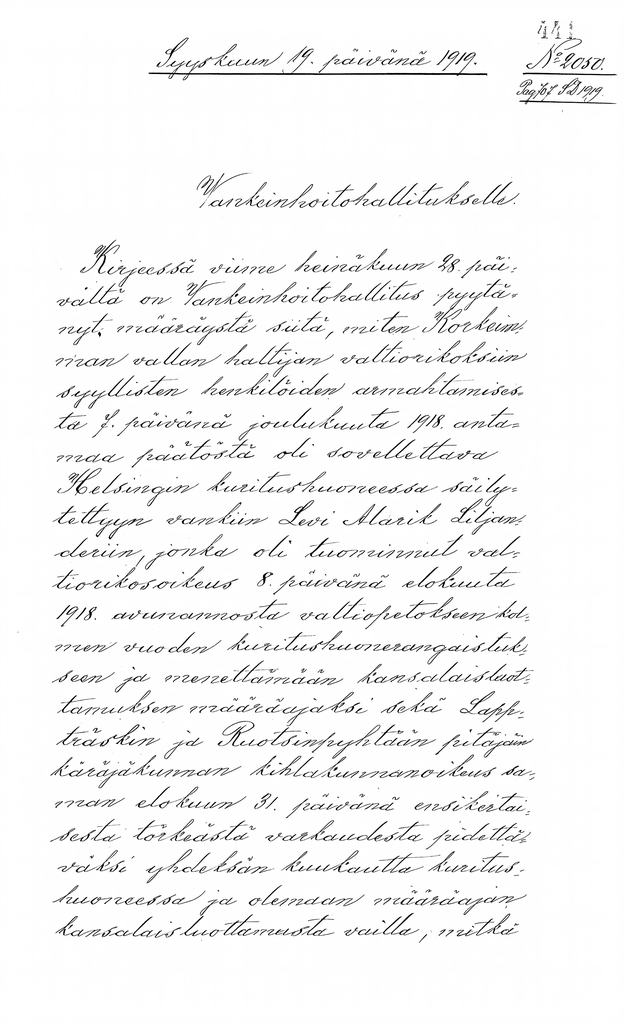 441
Syyskuun 19. päivänä 1919.
No 2050.
Pag 707 SD 1919.
Vankeinhoitohallitukselle.
Kirjeessä viime heinäkuun 28. päi-
vältä on Vankeinhoitohallitus pyytä-
nyt määräystä siitä, miten Korkeim-
man vallan haltijan valtiorikoksiin
syyllisten henkilöiden armahtamises-
ta 7. päivänä joulukuuta 1918. anta-
maa päätöstä oli sovellettava
Helsingin kuritushuoneessa säily-
tettyyn vankiin Levi Alarik Liljan-
deriin, jonka oli tuominnut val-
tiorikosoikeus 8. päivänä elokuuta
1918. avunannosta valtiopetokseen kol-
men vuoden kuritushuonerangaistuk-
seen ja menettämään kansalaisluot-
tamuksen määräajaksi sekä Lapp-
träskin ja Ruotsinpyhtään pitäjäin
käräjäkunnan kihlakunnanoikeus sa-
man elokuun 31. päivänä ensikertai-
sesta törkeästä varkaudesta pidettä-
väksi yhdeksän kuukautta kuritus-
huoneessa ja olemaan määräajan
kansalaisluottamusta vailla, mitkä